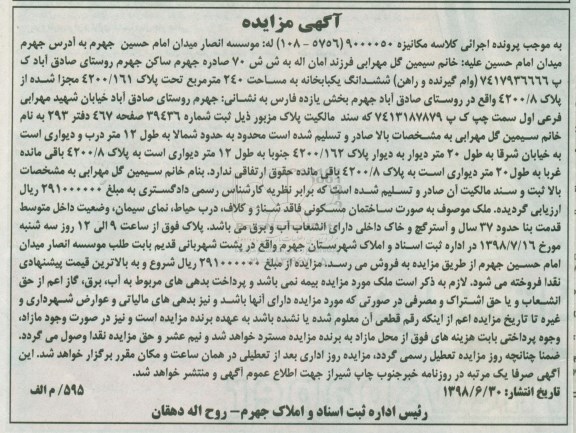 آگهی مزایده
به موجب پرونده اجرائی کلاسه مکانیزه ۹۰۰۰۰۵۰ (۵۷۵۶ - ۱۰۸) له: موسسه انصار میدان امام حسین جهرم به آدرس جهرم
میدان امام حسین علیه: خانم سیمین گل مهرابی فرزند امان اله به ش ش ۷۰ صادره جهرم ساکن جهرم روستای صادق آباد ک
پ ۷۴۱۷۹۳۶۶۶۶ (وام گیرنده و راهن) ششدانگ یکبابخانه به مساحت ۲۴۰ مترمربع تحت پلاک ۴۲۰۰/۱۶۱ مجزا شده از
پلاک ۴۲۰۰/۸ واقع در روستای صادق آباد جهرم بخش یازده فارس به نشانی: جهرم روستای صادق آباد خیابان شهید مهرابی
فرعی اول سمت چپ ک پ ۷۴۱۳۱۸۷۸۷۹ که سند مالکیت پلاک مزبور ذیل ثبت شماره ۳۹۴۳۶ صفحه ۴۶۷ دفتر ۲۹۳ به نام
خانم سیمین گل مهرابی به مشخصات بالا صادر و تسلیم شده است محدود به حدود شمالا به طول ۱۲ متر درب و دیواری است
به خیابان شرقا به طول ۲۰ متر دیوار به دیوار پلاک ۴۲۰۰/۱۶۲ جنوبا به طول ۱۲ متر دیواری است به پلاک ۴۲۰۰/۸ باقی مانده
غربا به طول ۲۰ متر دیواری است به پلاک ۴۲۰۰/۸ باقی مانده حقوق ارتفاقی ندارد. بنام خانم سیمین گل مهرابی به مشخصات
بالا ثبت و سند مالکیت آن صادر و تسلیم شده است که برابر نظریه کارشناس رسمی دادگستری به مبلغ ۲۹۱۰۰۰۰۰۰ ریال
ارزیابی گردیده. ملک موصوف به صورت ساختمان مسکونی فاقد شناژ و کلاف، درب حیاط، نمای سیمان، وضعیت داخل متوسط
قدمت بنا حدود ۳۷ سال و آسترگچ و خاک داخلی دارای انشعاب آب و برق می باشد. پلاک فوق از ساعت ۹ الی ۱۲ روز سه شنبه
مورخ ۱۳۹۸/۷/۱۶ در اداره ثبت اسناد و املاک شهرستان جهرم واقع در پشت شهربانی قدیم بابت طلب موسسه انصار میدان
امام حسین جهرم از طریق مزایده به فروش می رسد. مزایده از مبلغ ۲۹۱۰۰۰۰۰۰ ریال شروع و به بالاترین قیمت پیشنهادی
نقدا فروخته می شود. لازم به ذکر است ملک مورد مزایده بیمه نمی باشد و پرداخت بدهی های مربوط به آب، برق، گاز اعم از حق
انشعاب و یا حق اشتراک و مصرفی در صورتی که مورد مزایده دارای آنها باشد و نیز بدهی های مالیاتی و عوارض شهرداری و
غیره تا تاریخ مزایده اعم از اینکه رقم قطعی آن معلوم شده یا نشده باشد به عهده برنده مزایده است و نیز در صورت وجود مازاد،
وجوه پرداختی بابت هزینه های فوق از محل مازاد به برنده مزایده مسترد خواهد شد و نیم عشر و حق مزایده نقدا وصول می گردد.
ضمنا چنانچه روز مزایده تعطیل رسمی گردد، مزایده روز اداری بعد از تعطیلی در همان ساعت و مکان مقرر برگزار خواهد شد. این
آگهی صرفا یک مرتبه در روزنامه خبرجنوب چاپ شیراز جهت اطلاع عموم آگهی و منتشر خواهد شد.
تاریخ انتشار: ۱۳۹۸/۶/۳۰ ۵۹۵/ م الف
رئیس اداره ثبت اسناد و املاک جهرم- روح اله دهقان